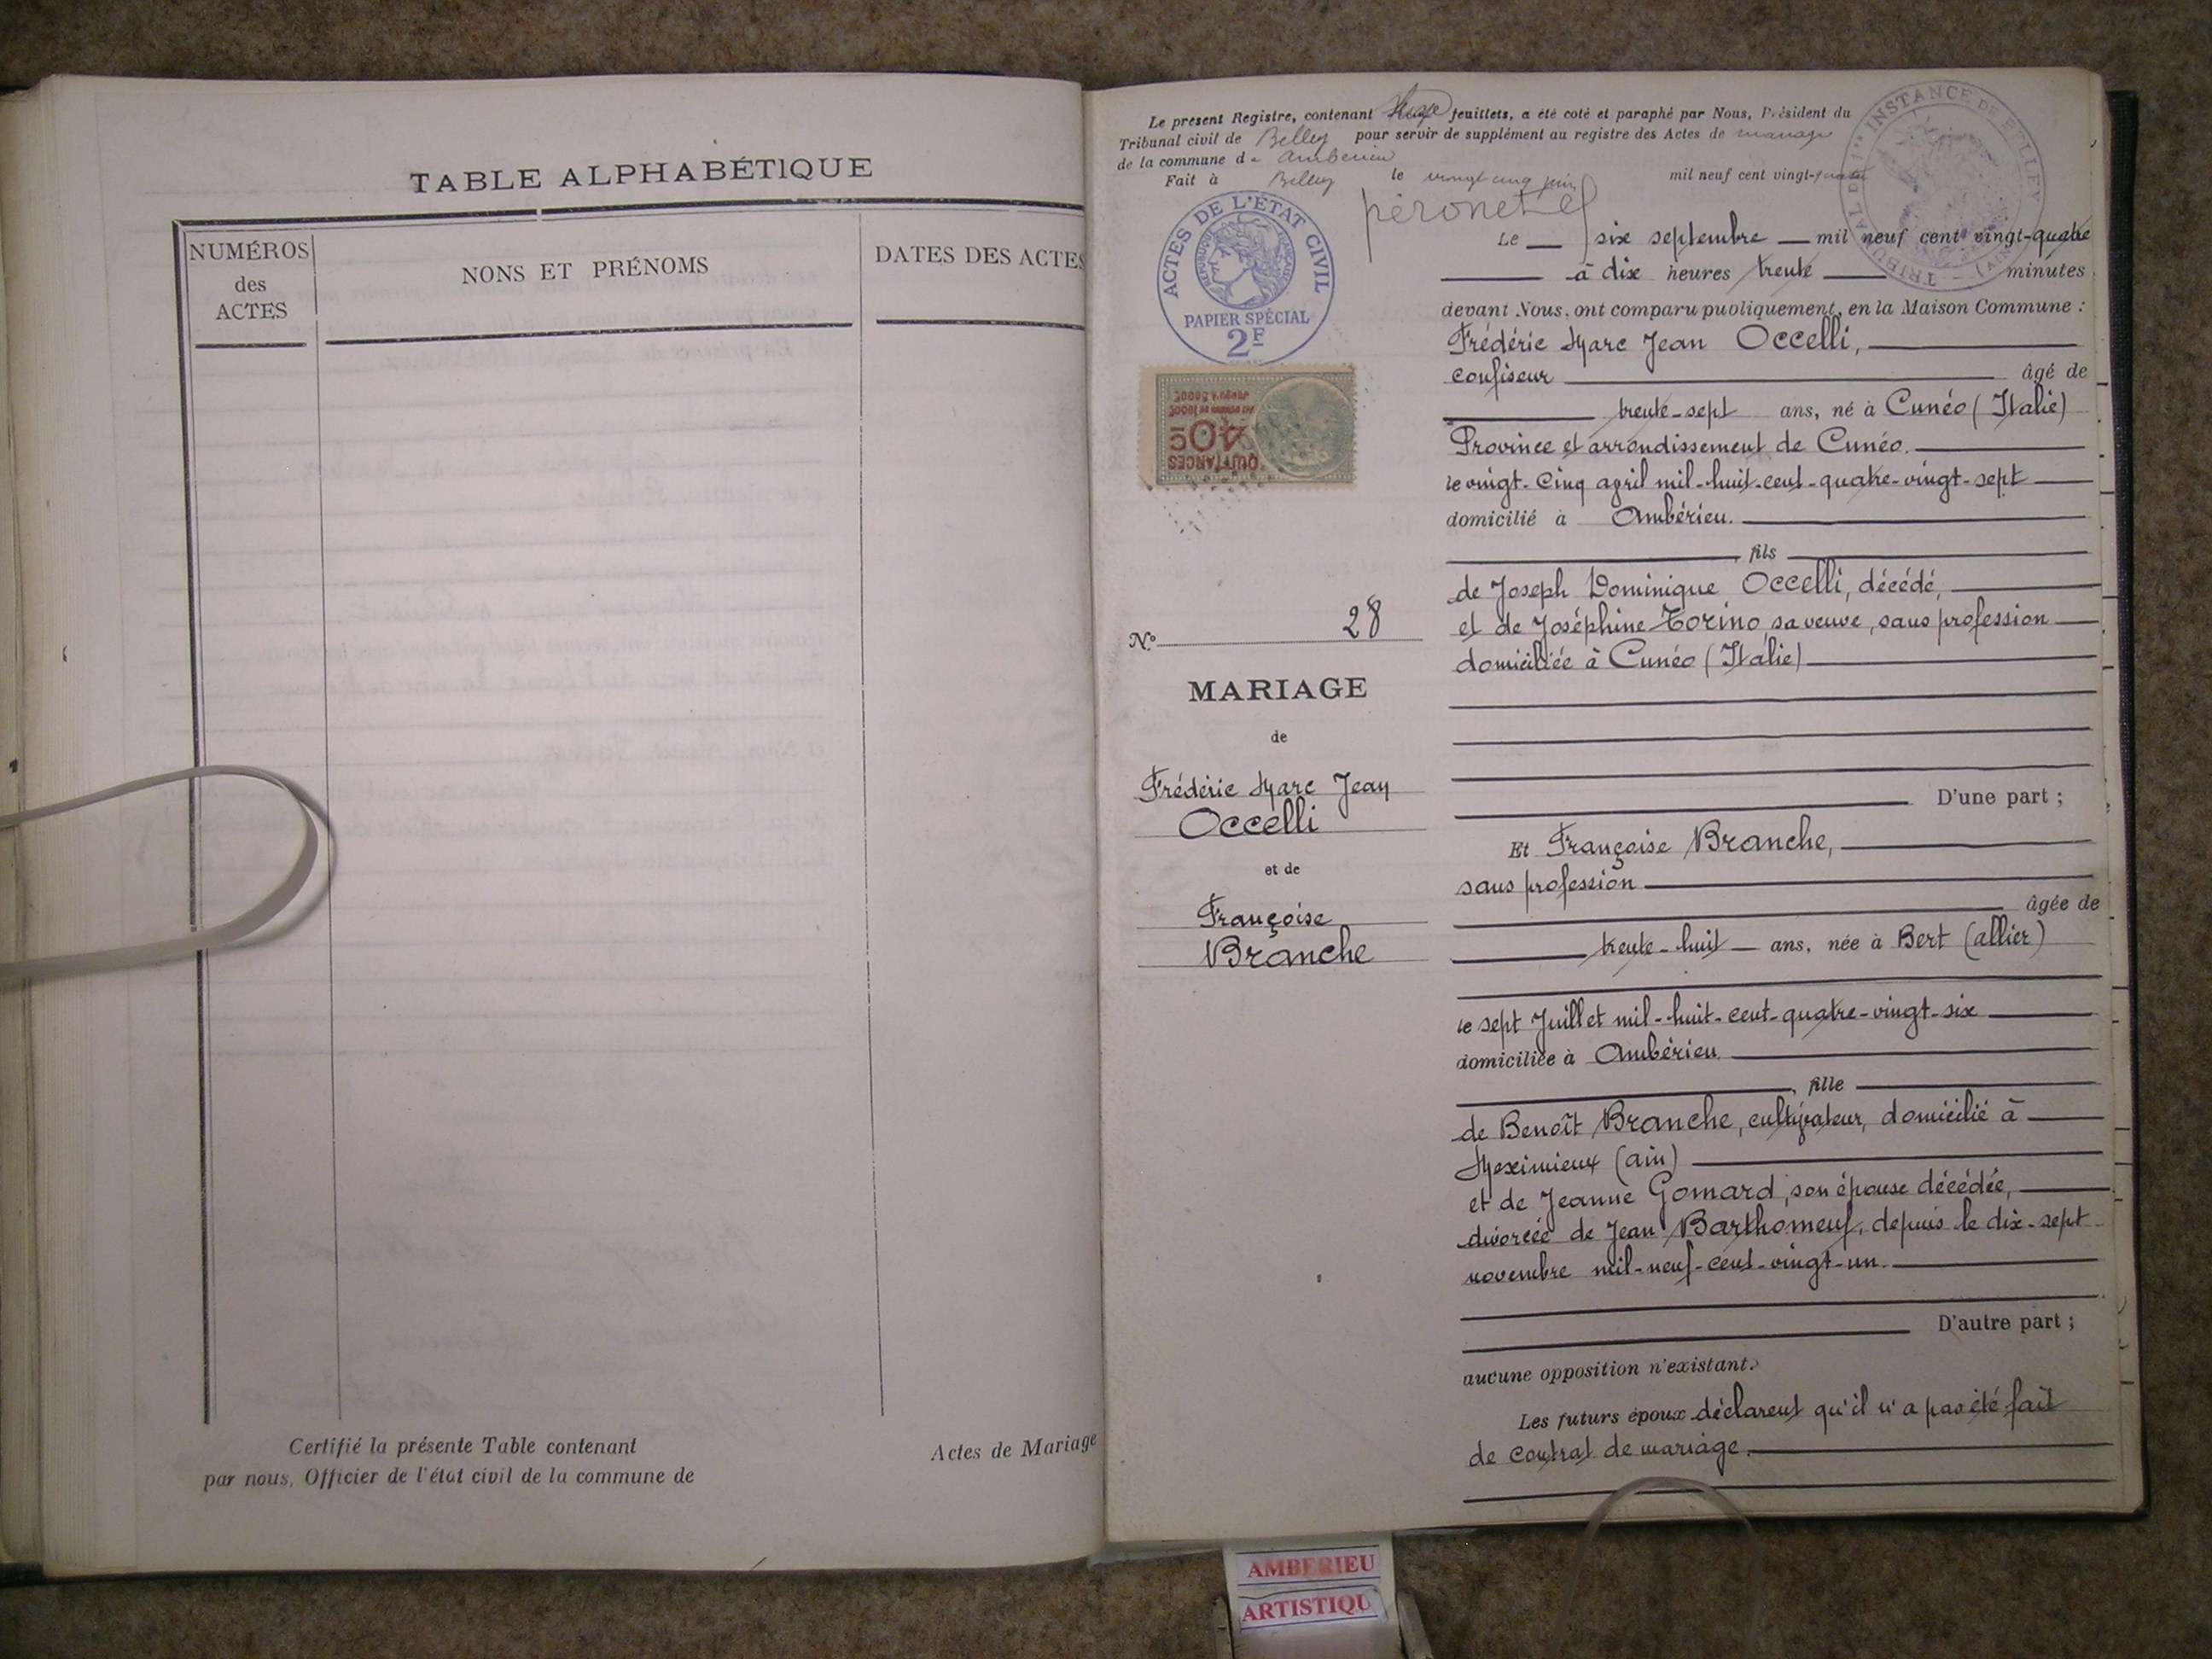 TABLE ALPHABÉTIQUE
NUMÉROS
des
ACTES
NONS ET PRÉNOMS
DATES DES ACTES
Certifié la présente Table contenant
Actes de Mariage
par nous, Officier de l'état civil de la commune de
Le present Registre, contenant feuillets, a été coté et paraphé par Nous, Président du
Tribunal civil de Belley pour servir de supplément au registre des Actes de mariage
de la commune de Ambérieu
Fait à Belley le vingt cinq juin mil neuf cent vingt-quatre
péronet
TRIBUNAL DE 1re INSTANCE DE BELLEY
ACTES DE L'ÉTAT CIVIL
RÉPUBLIQUE FRANÇAISE
PAPIER SPÉCIAL
2F
QUITTANCES
40c
Le six septembre mil neuf cent vingt-quatre
à dix heures trente minutes
devant Nous, ont comparu puoliquement, en la Maison Commune :
Frédéric Marc Jean Occelli,
confiseur âgé de
trente-sept ans, né à Cunéo (Italie)
Province et arrondissement de Cunéo.
le vingt-cinq avril mil-huit-cent-quatre-vingt-sept
domicilié à Ambérieu.
fils
de Joseph Dominique Occelli, décédé,
et de Joséphine Torino sa veuve, sans profession
domiciliée à Cunéo (Italie)
D'une part ;
N° 28
MARIAGE
de
Frédéric Marc Jean
Occelli
et de
Françoise
Branche
Et Françoise Branche,
sans profession
âgée de
trente-huit ans, née à Bert (allier)
le sept Juillet mil-huit-cent-quatre-vingt-six
domiciliée à Ambérieu
fille
de Benoît Branche, cultivateur, domicilié à
Meximieux (ain)
et de Jeanne Gomard, son épouse décédée,
divorcée de Jean Barthomeuf, depuis le dix-sept
novembre mil-neuf-cent-vingt-un.
D'autre part ;
aucune opposition n'existant.
Les futurs époux déclarent qu'il n'a pas été fait
de contrat de mariage.
AMBERIEU
ARTISTIQU